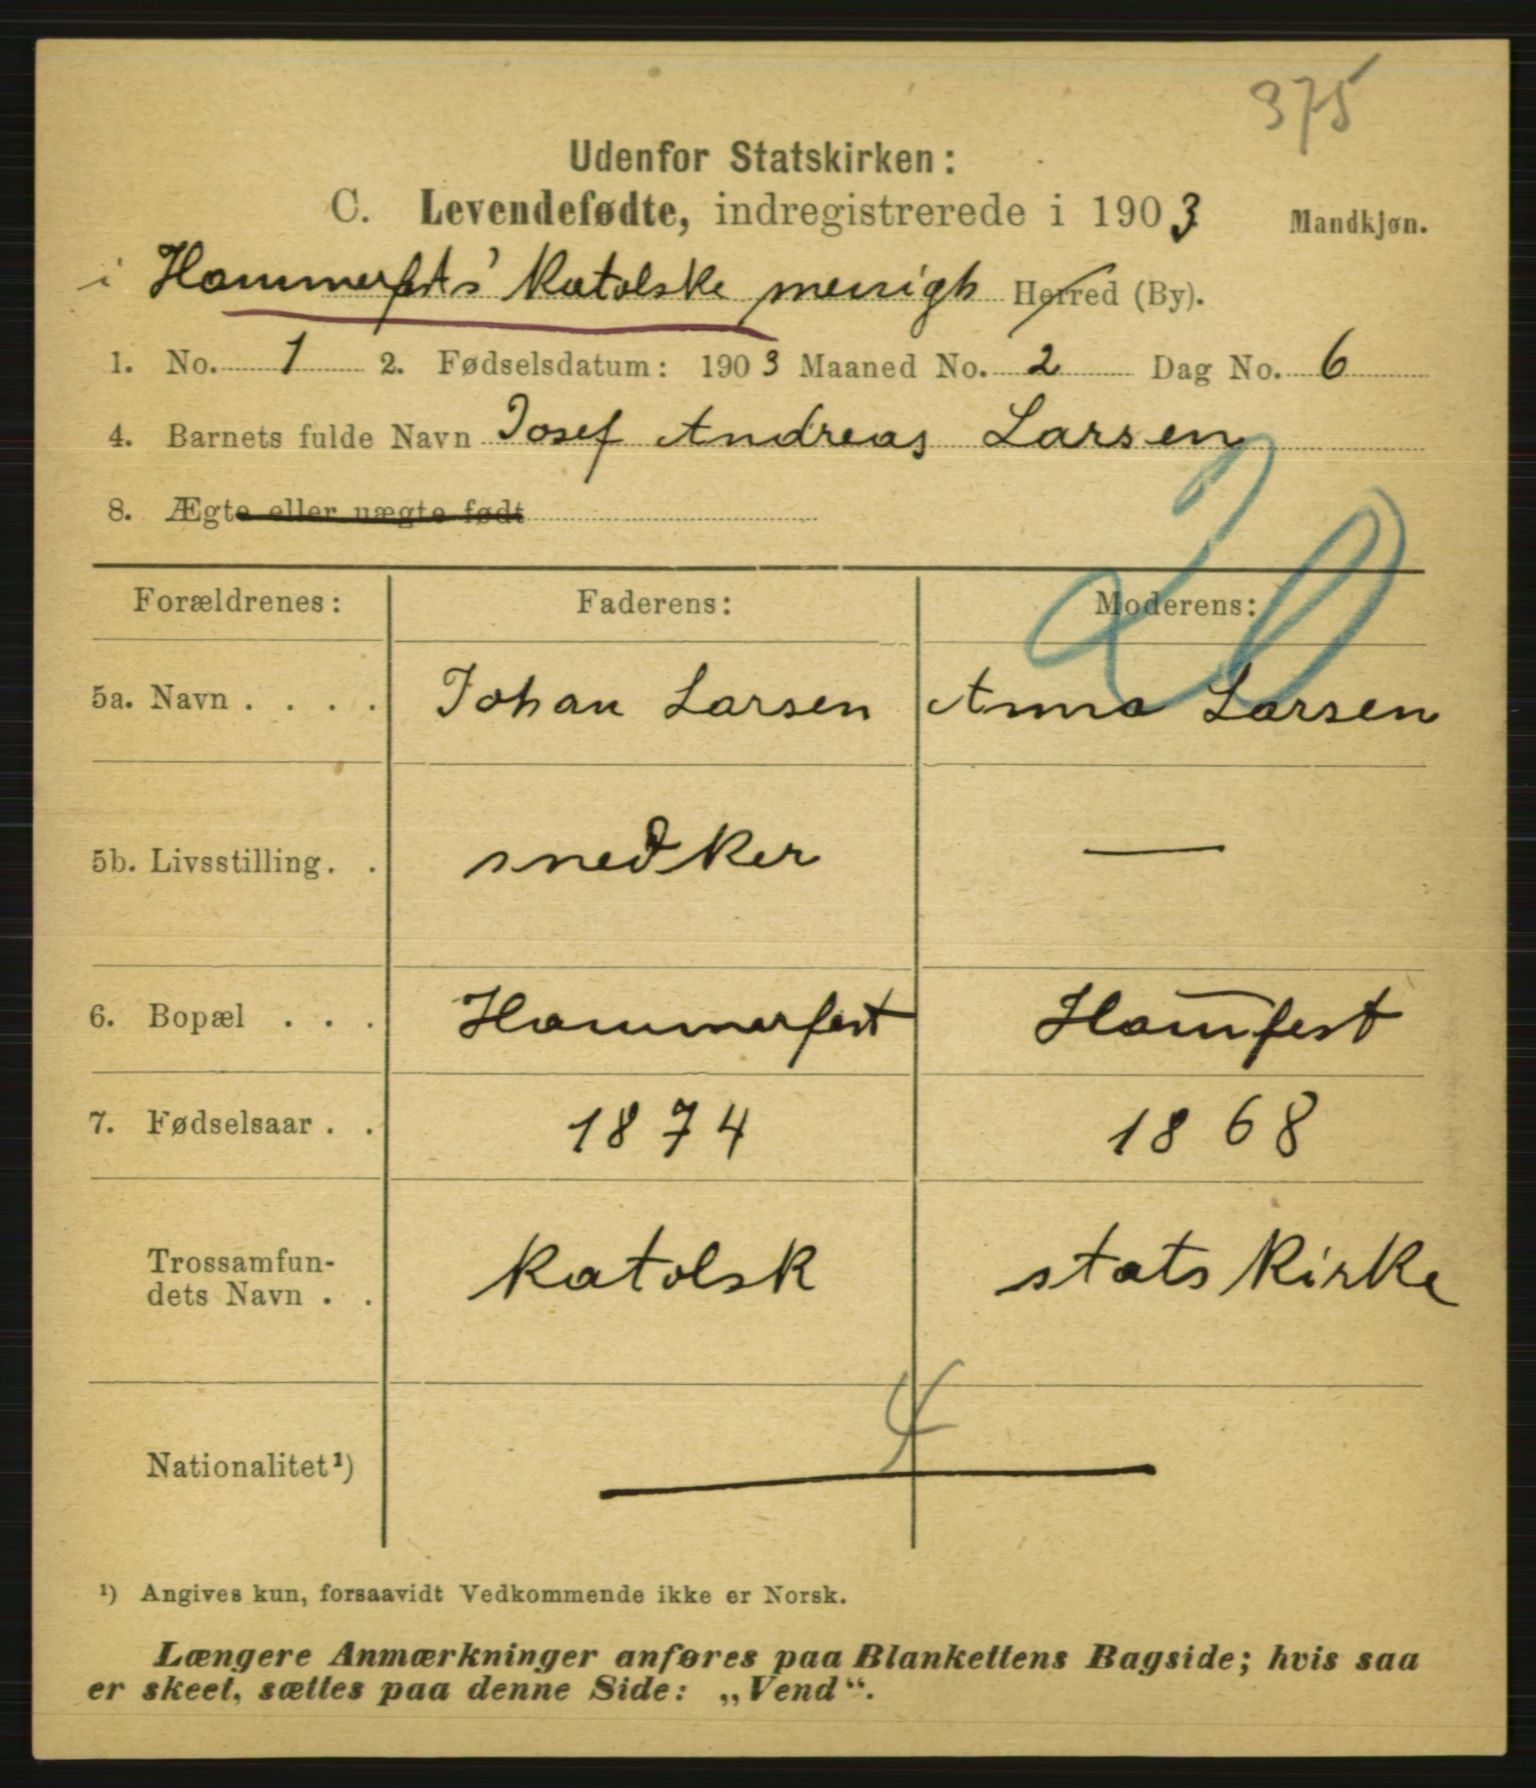 375
Udenfor Statskirken:
C. Levendefødte, indregistrerede i 1903 Mandkjøn.
i Hammerfests' Katolske menigh Herred (By).
1. No. 1 2. Fødselsdatum: 1903 Maaned No. 2 Dag No. 6
4. Barnets fulde Navn Josef Andreas Larsen
8. Ægte eller uægte født
20
Forældrenes: Faderens: Moderens:
5a. Navn . . . . Johan Larsen Anna Larsen
5b. Livsstilling. . snedker —
6. Bopæl . . . Hammerfest Hamfest
7. Fødselsaar . . 1874 1868
Trossamfun-
dets Navn . . Katolsk statskirke
4
Nationalitet¹) —
¹) Angives kun, forsaavidt Vedkommende ikke er Norsk.
Længere Anmærkninger anføres paa Blankettens Bagside; hvis saa
er skeet, sættes paa denne Side: „Vend“.